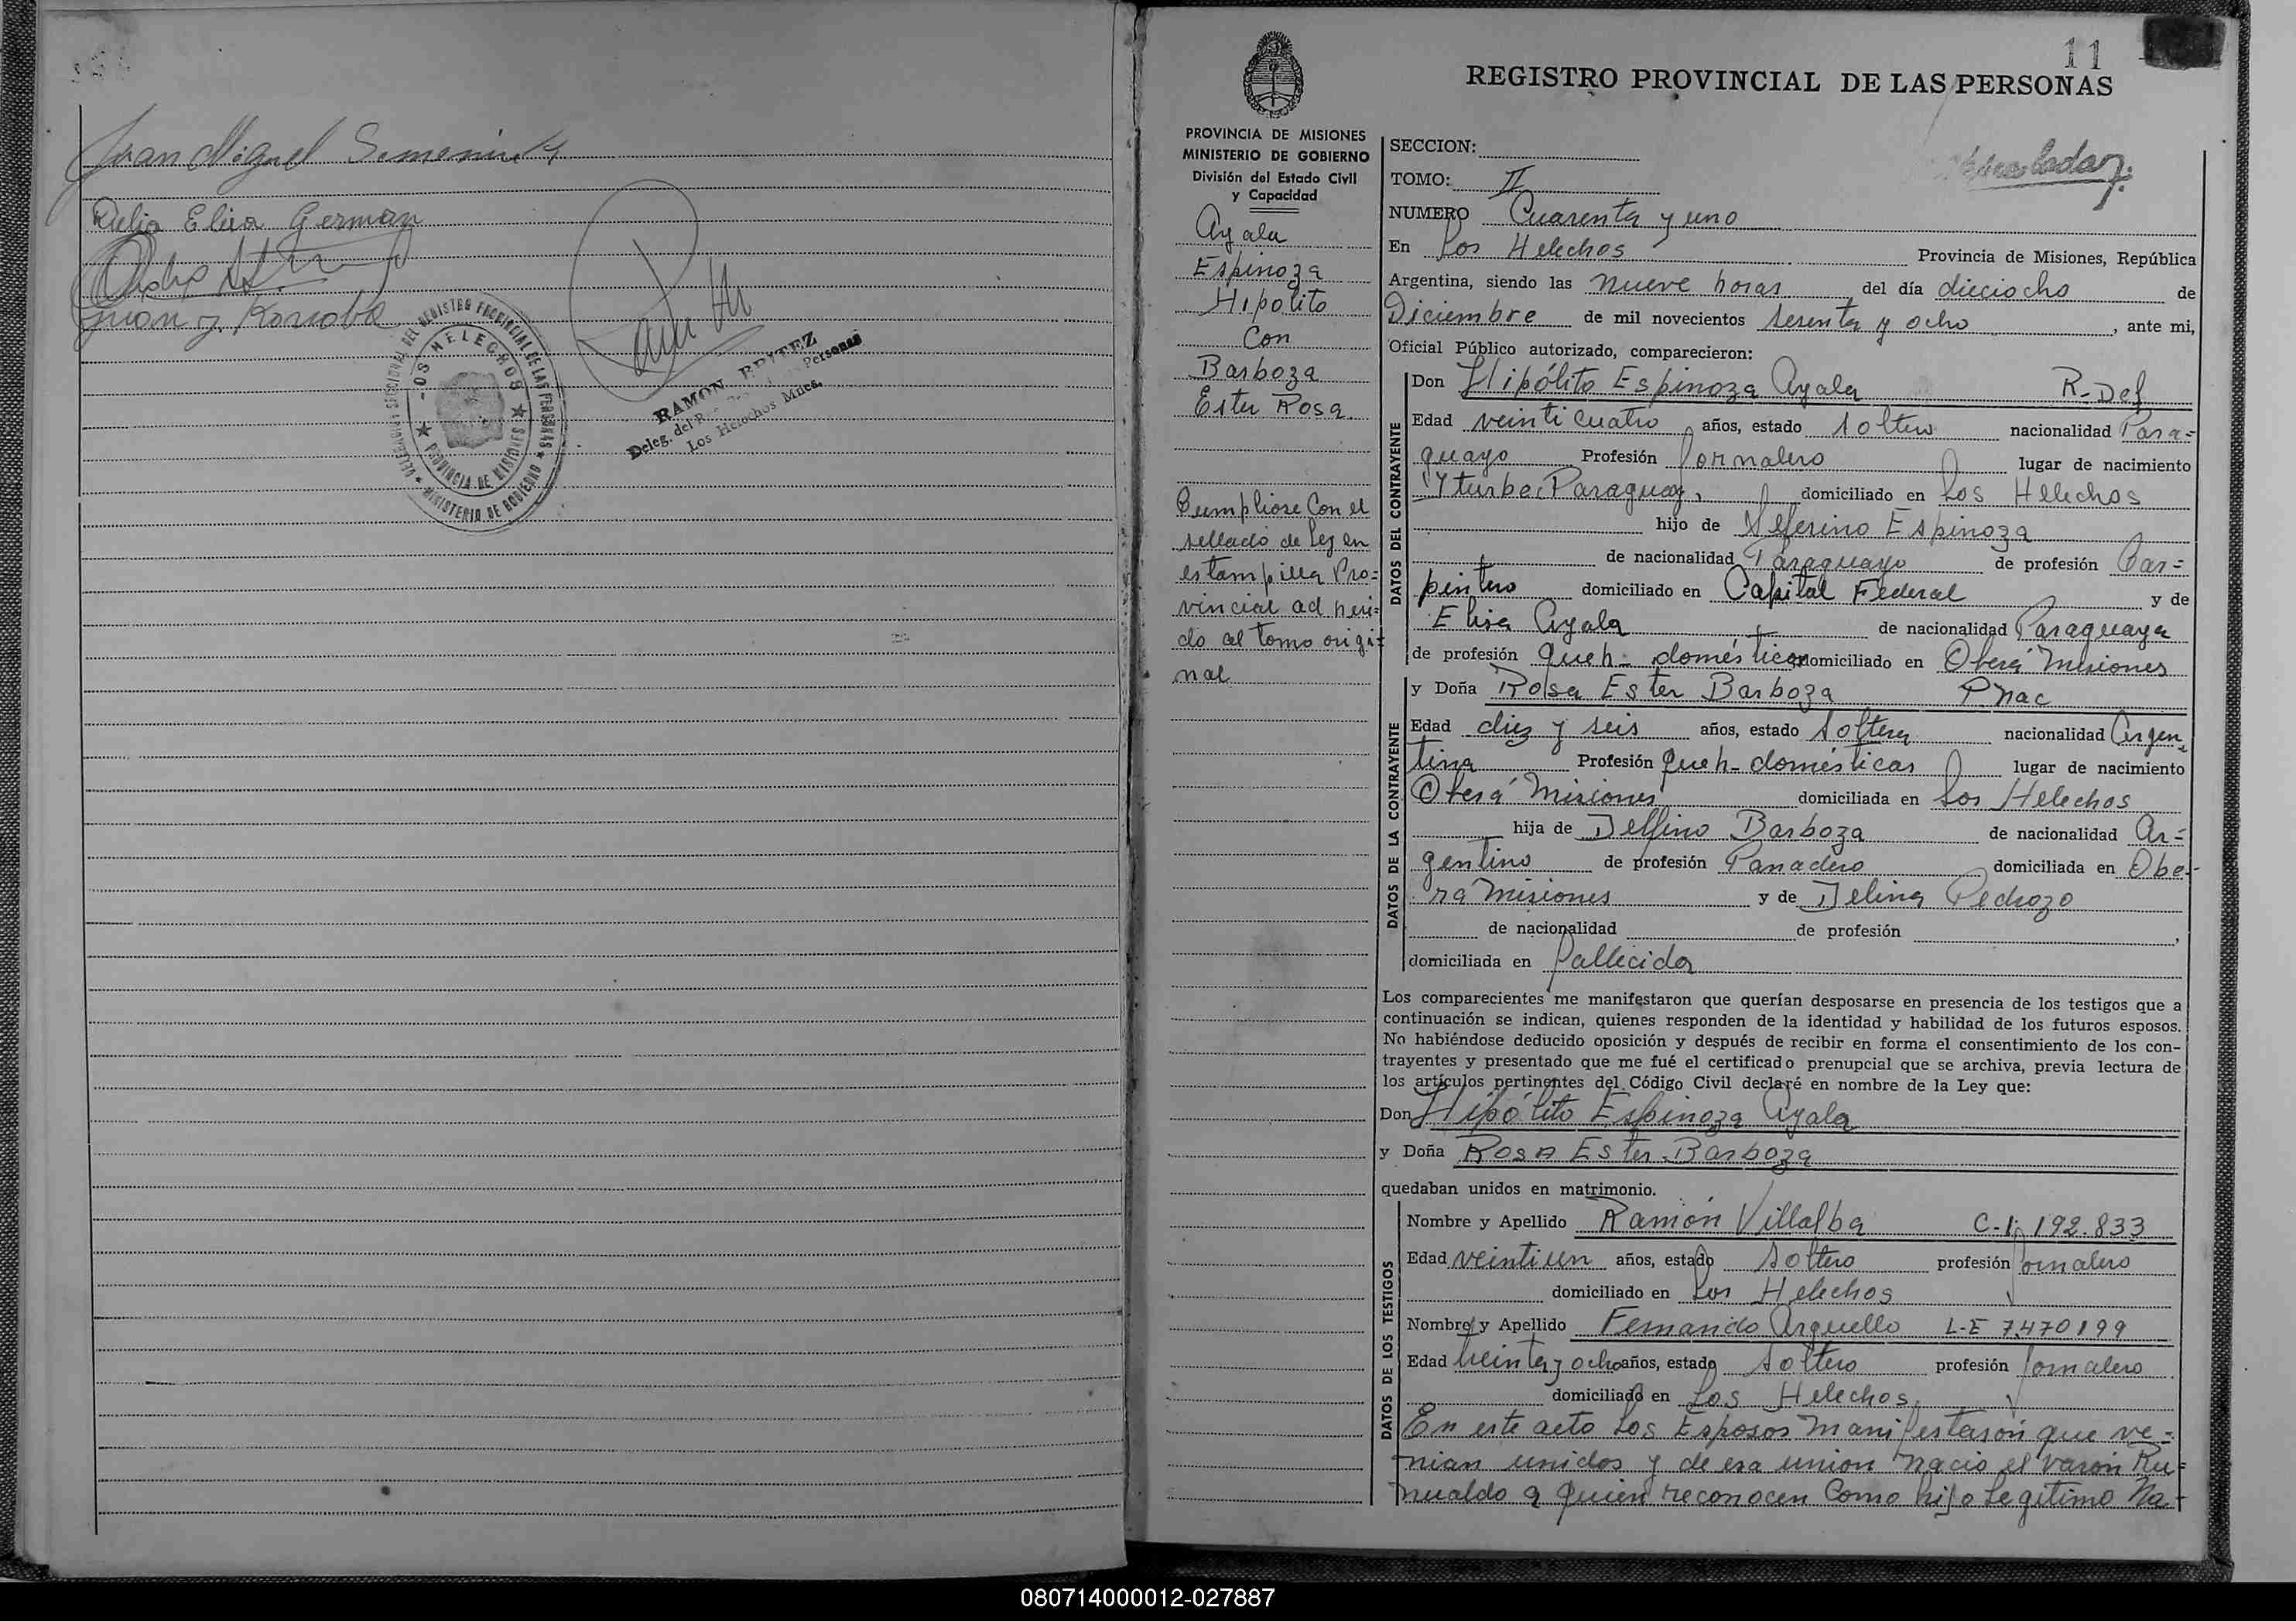 Juan Miguel
Delia Elisa German
Juan J.
DELEGACION SECCIONAL DEL REGISTRO PROVINCIAL DE LAS PERSONAS
LOS HELECHOS
PROVINCIA DE MISIONES
MINISTERIO DE GOBIERNO
RAMON BRITEZ
Deleg. del Personas
Los Helechos Mnes.
11
REGISTRO PROVINCIAL DE LAS PERSONAS
PROVINCIA DE MISIONES
MINISTERIO DE GOBIERNO
División del Estado Civil
y Capacidad
Ayala
Espinoza
Hipolito
Con
Barboza
Ester Rosa
Cumpliose Con el
sellado de Ley en
estampilla Pro=
vincial adheri=
do al tomo origi=
nal
SECCION:
TOMO: II
NUMERO Cuarenta y uno
En Los Helechos Provincia de Misiones, República
Argentina, siendo las nueve horas del día dieciocho de
Diciembre de mil novecientos sesenta y ocho, ante mi,
Oficial Público autorizado, comparecieron:
DATOS DEL CONTRAYENTE
Don Hipólito Espinoza Ayala R-Def
Edad veinticuatro años, estado soltero nacionalidad Para=
guayo Profesión Jornalero lugar de nacimiento
Yturbe, Paraguay, domiciliado en Los Helechos
hijo de Seferino Espinoza
de nacionalidad Paraguayo de profesión Car=
pintero domiciliado en Capital Federal y de
Elisa Ayala de nacionalidad Paraguaya
de profesión Queh- domésticos domiciliado en Oberá Misiones
DATOS DE LA CONTRAYENTE
y Doña Rosa Ester Barboza P.nac
Edad diez y seis años, estado Soltera nacionalidad Argen=
tina Profesión Queh- domésticas lugar de nacimiento
Oberá Misiones domiciliada en Los Helechos
hija de Delfino Barboza de nacionalidad Ar=
gentino de profesión Panadero domiciliada en Obe-
rá Misiones y de Delina Pedrozo
de nacionalidad de profesión ,
domiciliada en fallecida
Los comparecientes me manifestaron que querían desposarse en presencia de los testigos que a
continuación se indican, quienes responden de la identidad y habilidad de los futuros esposos.
No habiéndose deducido oposición y después de recibir en forma el consentimiento de los con-
trayentes y presentado que me fué el certificado prenupcial que se archiva, previa lectura de
los artículos pertinentes del Código Civil declaré en nombre de la Ley que:
Don Hipólito Espinoza Ayala
y Doña Rosa Ester Barboza
quedaban unidos en matrimonio.
DATOS DE LOS TESTIGOS
Nombre y Apellido Ramón Villalba C-I- 192.833
Edad veintiun años, estado soltero profesión Jornalero
domiciliado en Los Helechos
Nombre y Apellido Fernando Arguello L-E 7.470199
Edad treinta y ocho años, estado Soltero profesión Jornalero
domiciliado en Los Helechos
En este acto Los Esposos Manifestaron que ve=
nian unidos y de esa union nacio el varon Ru=
mualdo a quien reconocen Como hijo Legitimo Na=
080714000012-027887